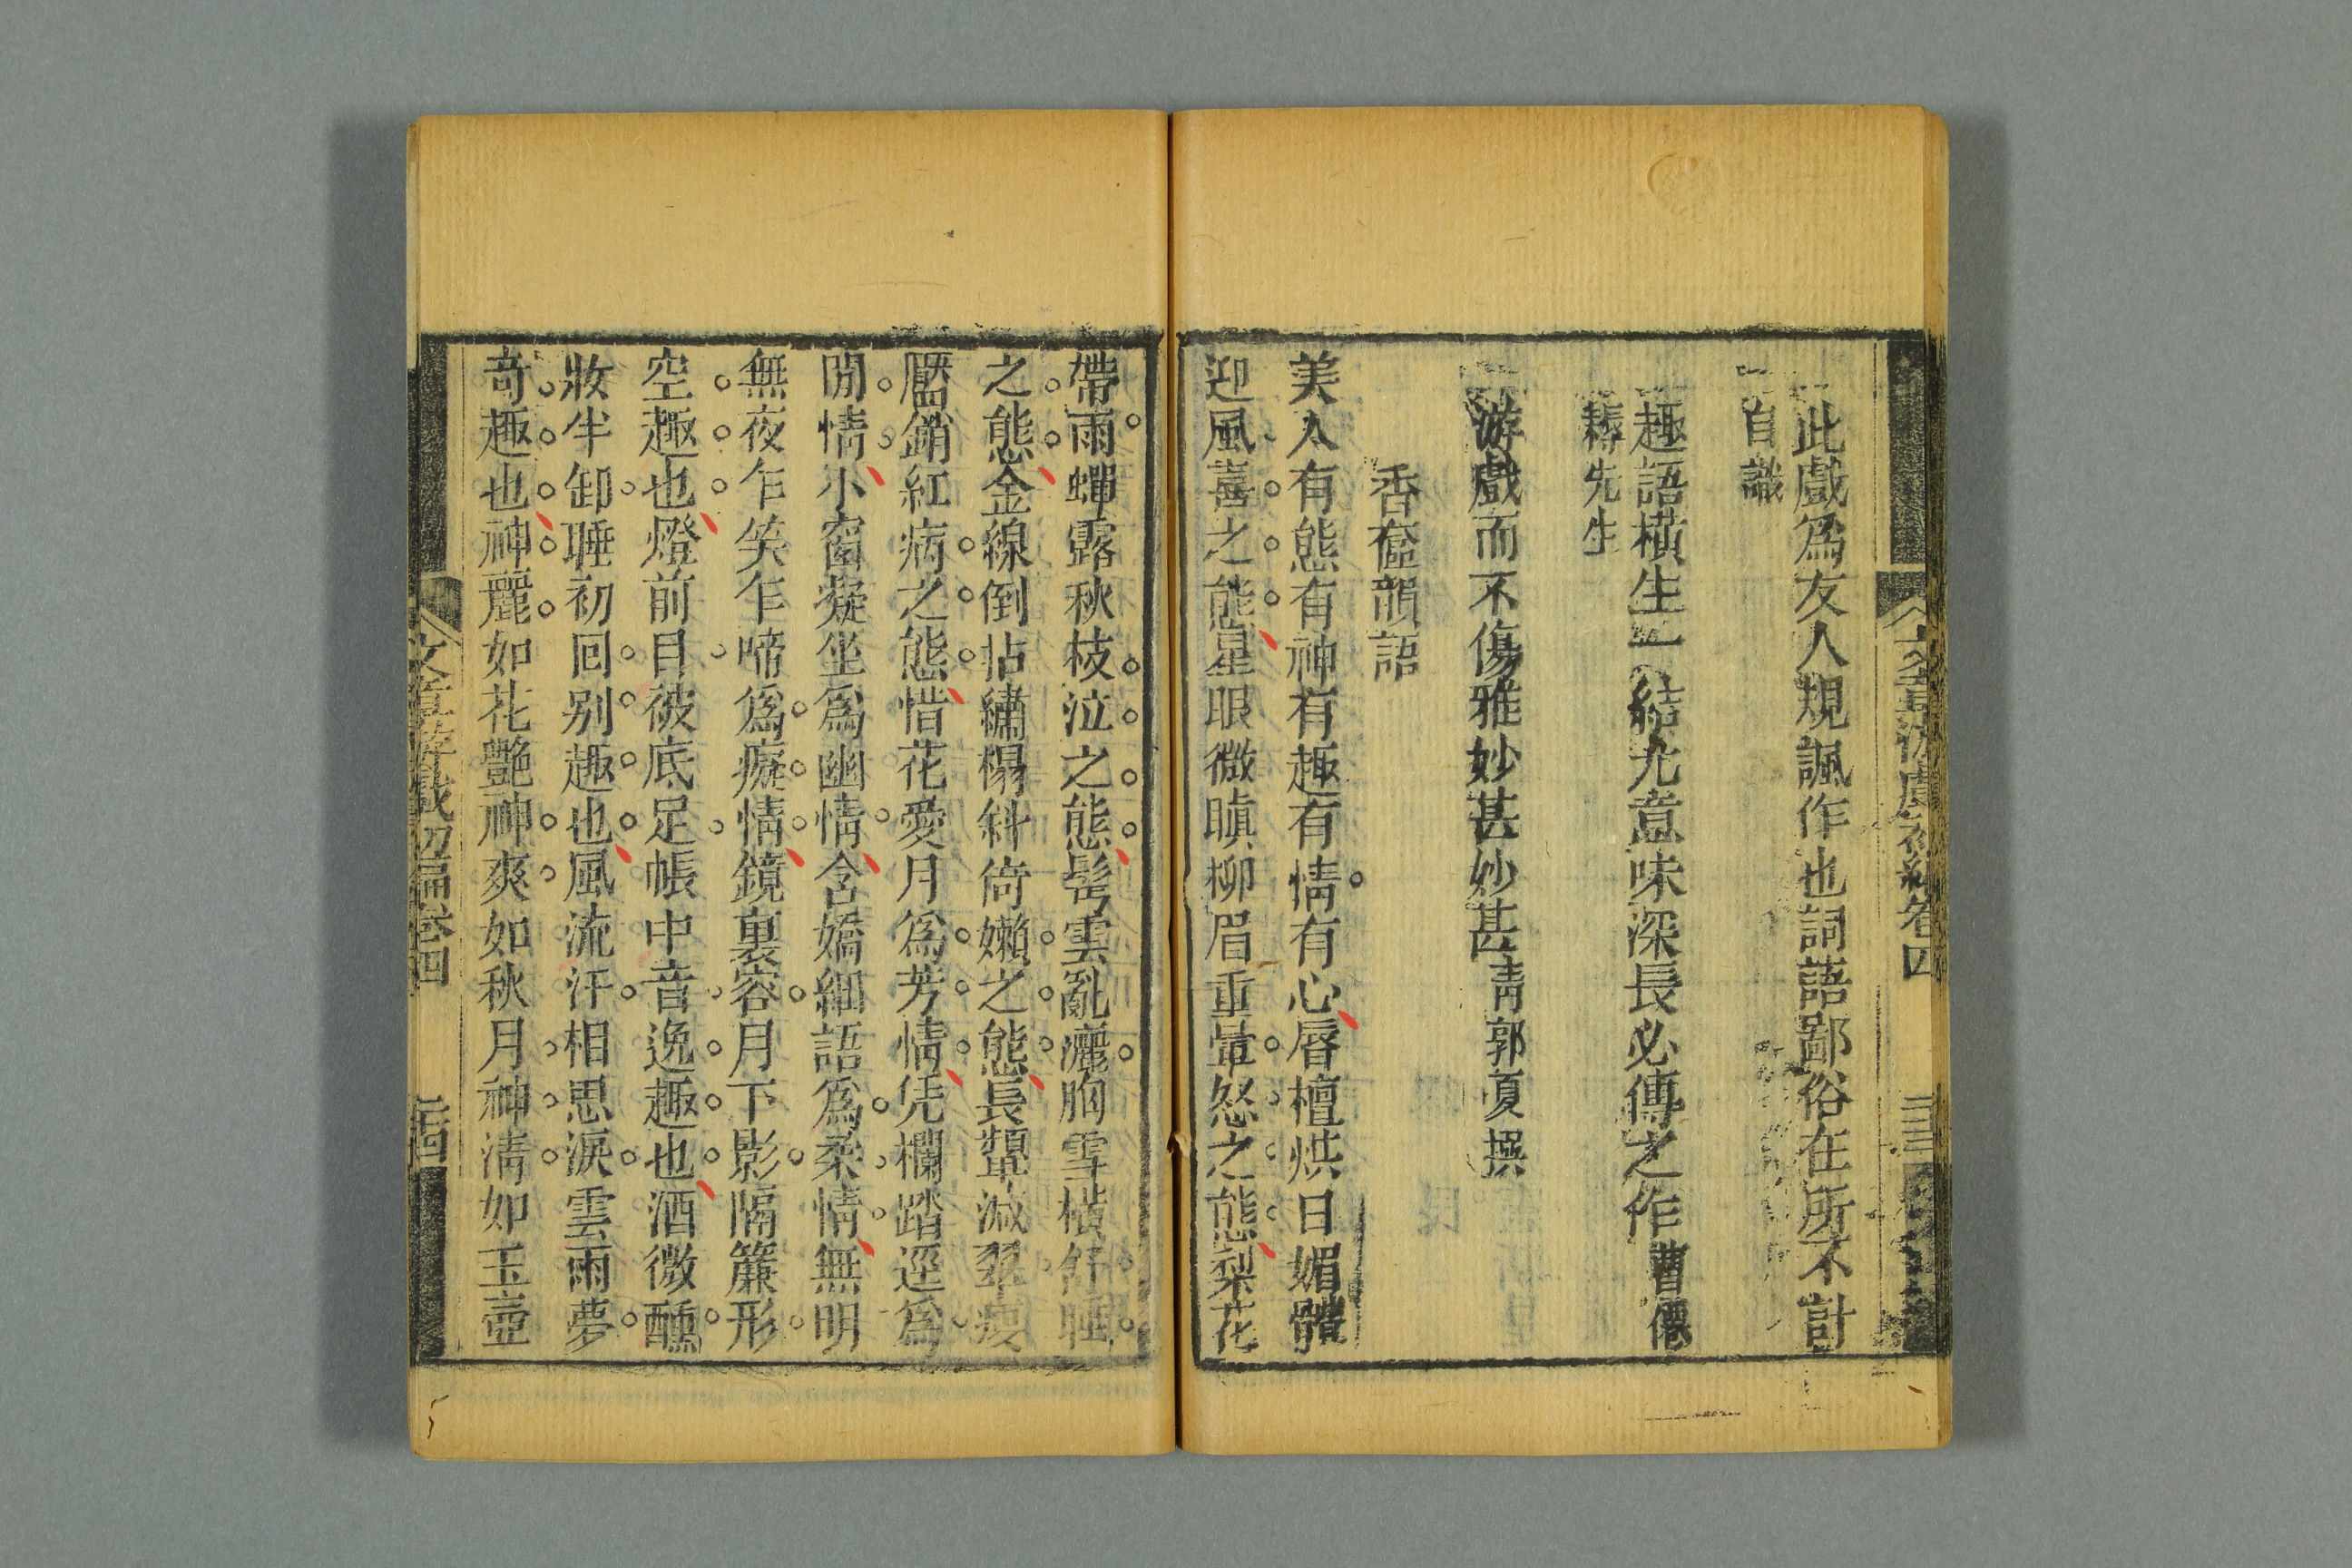 此戲爲友人規諷作也詞語鄙俗在所不計
自識
趣語橫生一結尤意味深長必傳之作曹儷
耨先生
游戲而不傷雅妙甚妙甚靑郭夏撰
香奩韻語
美人有態有神有趣有情有心脣檀烘日媚體
迎風喜之態星眼微瞋柳眉重暈怒之態梨花
帶雨蟬露秋枝泣之態鬓雲亂灑胸雪橫舒睡
之態金線倒拈繡榻斜倚嬾之態長顰減翠瘦
靨銷紅病之態惜花愛月爲芳情凭欄踏逕爲
閒情小窗凝坐爲幽情含嬌細語爲柔情無明
無夜乍笑乍啼爲癡情鏡裏容月下影隔簾形
空趣也燈前目被底足帳中音逸趣也酒微醺
妝半卸睡初回别趣也風流汗相思淚雲雨夢
奇趣也神麗如花艷神爽如秋月神清如玉壺
文章游戲初編卷四